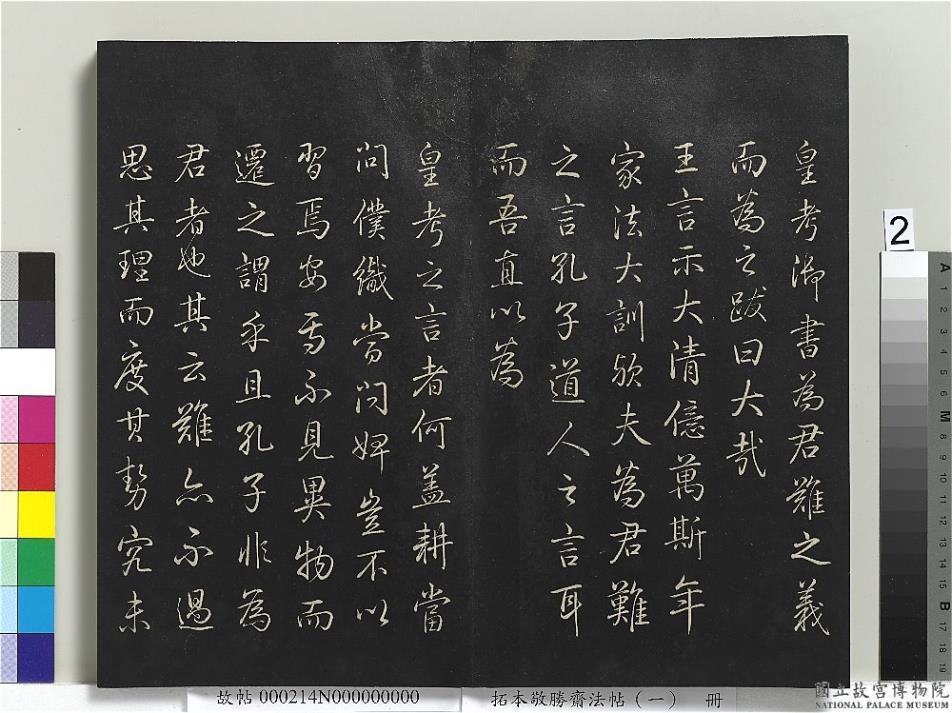 皇考御書為君難之義
而為之跋曰大哉
王言示大清億萬斯年
家法大訓欤夫為君難
之言孔子道人之言耳
而吾直以為
皇考之言者何盖耕當
問僕織當问婢豈不以
習焉安焉不見異物而
遷之謂乎且孔子非為
君者也其云難亦不過
思其理而度其勢究未
2
A 1 2 3 4 5 6 M 8 9 10 11 12 13 14 15 B 17 18 19
故帖 000214N000000000
拓本敬勝齋法帖（一） 冊
國立故宮博物院
NATIONAL PALACE MUSEUM